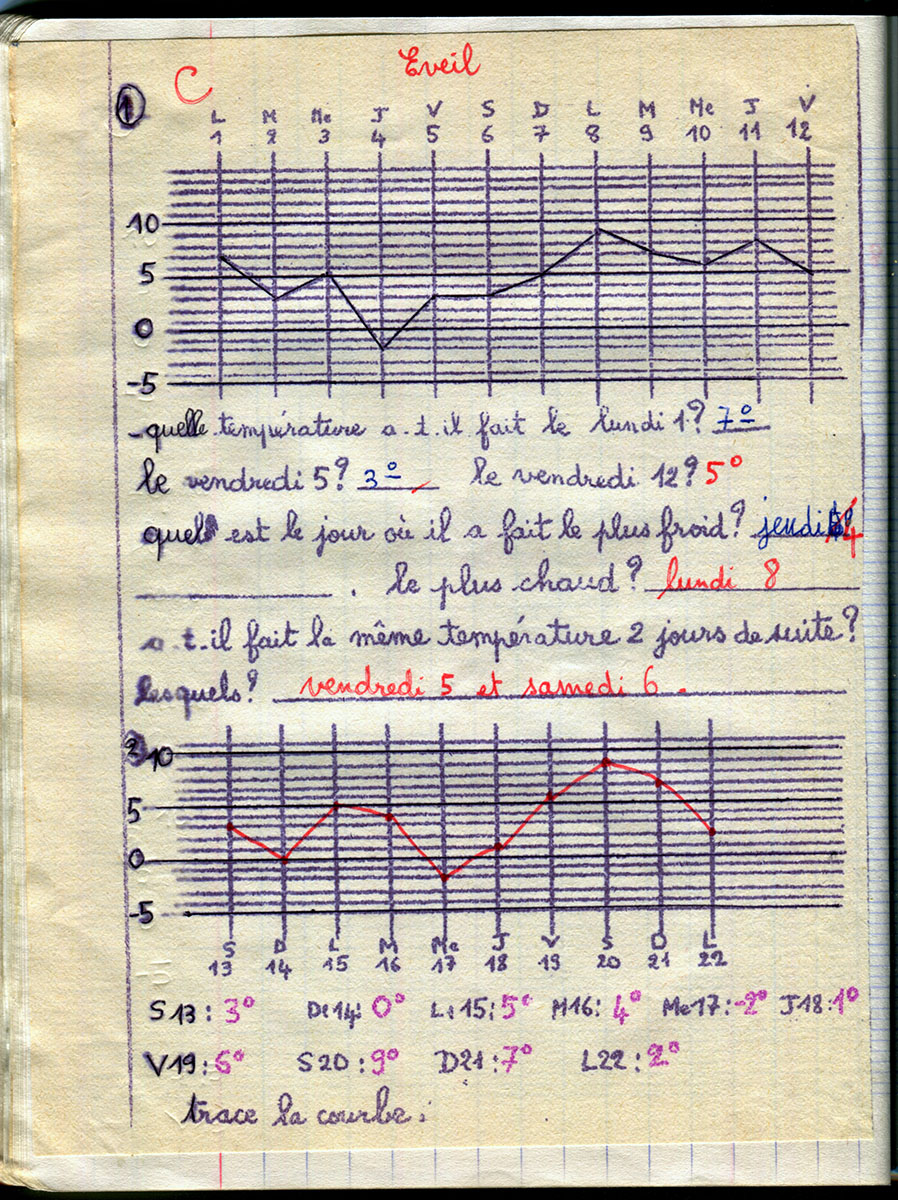 Eveil
C
1
L M Me J V S D L M Me J V
1 2 3 4 5 6 7 8 9 10 11 12
10
5
0
-5
- quelle température a-t-il fait le lundi 1? 7°
le vendredi 5? 3° le vendredi 12? 5°
quel est le jour où il a fait le plus froid? jeudi 4
. le plus chaud? lundi 8
a-t-il fait la même température 2 jours de suite?
lesquels? vendredi 5 et samedi 6.
2
10
5
0
-5
S D L M Me J V S D L
13 14 15 16 17 18 19 20 21 22
S13: 3° D14: 0° L15: 5° M16: 4° Me17: -2° J18: 1°
V19: 6° S20: 9° D21: 7° L22: 2°
trace la courbe: